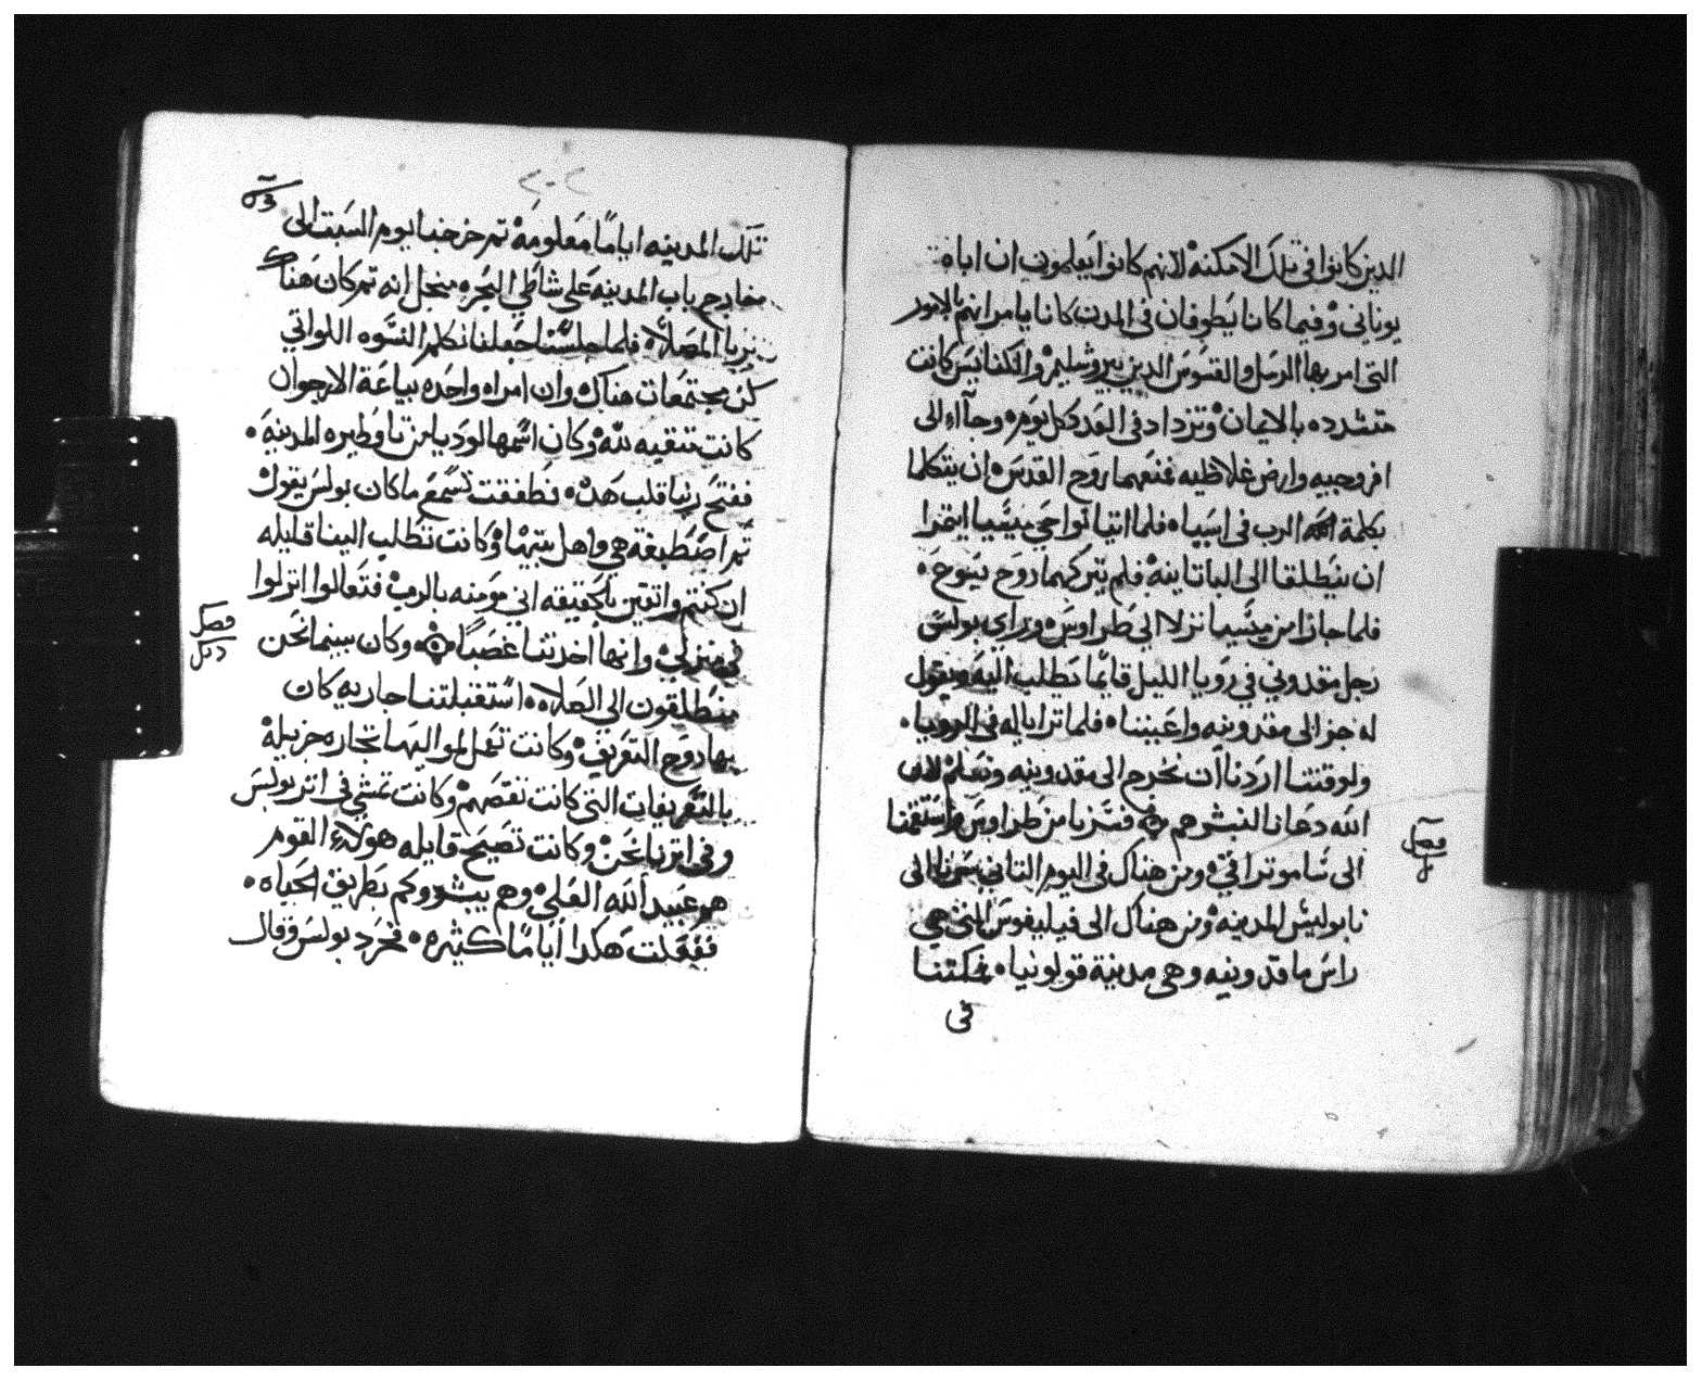 الدين كانوا في تلك الامكنه لانهم كانوا يعلمون ان اباه
يوناني وفيما كانا يطوفان في المدن كانا يامرانهم بالامور
التي امر بها الرسل والقسوس الدين بيروشليم والكنايس كانت
متشدده بالايمان وتزداد في العدد كل يوم وجآاء الى
افروجيه وارض غلاظيه فمنعهما روح القدس ان يتكلما
بكلمة الرب في اسيا فلما اتيا نواحي ميسيا ايتمرا
ان ينطلقا الى الباتانيه فلم يتركهما روح يسوع
فلما جازا من ميسيا نزلا الي طراوس وراي بولس
رجل مقدوني في رويا الليل قايما يطلب اليه ويقول
له جز الى مقدونيه واعيننا فلما ترايا له في الرويا
ولوقتنا اردنا ان نخرج الى مقدونيه ونعلم لان
الله دعانا لنبشرهم فسرنا من طراوس واستقمنا
الى ساموتراقي ومن هناك في اليوم التاني سرنا الى
نابوليس المدينه ومن هناك الى فيليفوس التي هي
راس ماقدونيه وهي مدينة قولونيا فمكتنا
في
فصل
ل
٢٠٢
تلك المدينه اياما معلومه تم خرجنا يوم السبت الى
خارج باب المدينه على شاطي البحر من اجل انه تم كان هناك
نريا المصلاه فلما جلسنا جعلنا نكلم النسوه اللواتي
كن مجتمعات هناك وان امراه واحده بياعة الارجوان
كانت متقيه لله وكان اسمها لوديا من تاوطيره المدينه
ففتح ربنا قلب هذه فطفقت تسمع ما كان بولس يقول
تم اصطبغة هي واهل بيتها وكانت تطلب الينا قليله
ان كنتم واتقين بالحقيقه اني مومنه بالرب فتعالوا انزلوا
في منزلي وانها اخدتنا غصبا وكان بينما نحن
منطلقون الي الصلاه استقبلتنا جاريه كان
بها روح التعريف وكانت تعمل لمواليها تجاره جزيله
بالتعريفات التي كانت تقصهم وكانت تمشي في اتر بولس
وفي اترنا نحن وكانت تصيح قايله هولاء القوم
هم عبيد الله العلي وهم يبشرونكم بطريق الحياه
ففعلت هكدا اياما كثيره فحرد بولس وقال
فصل